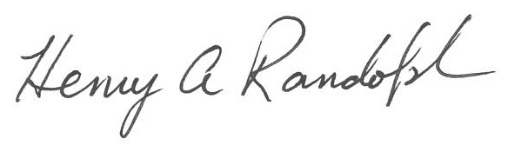 Henry A Randolph